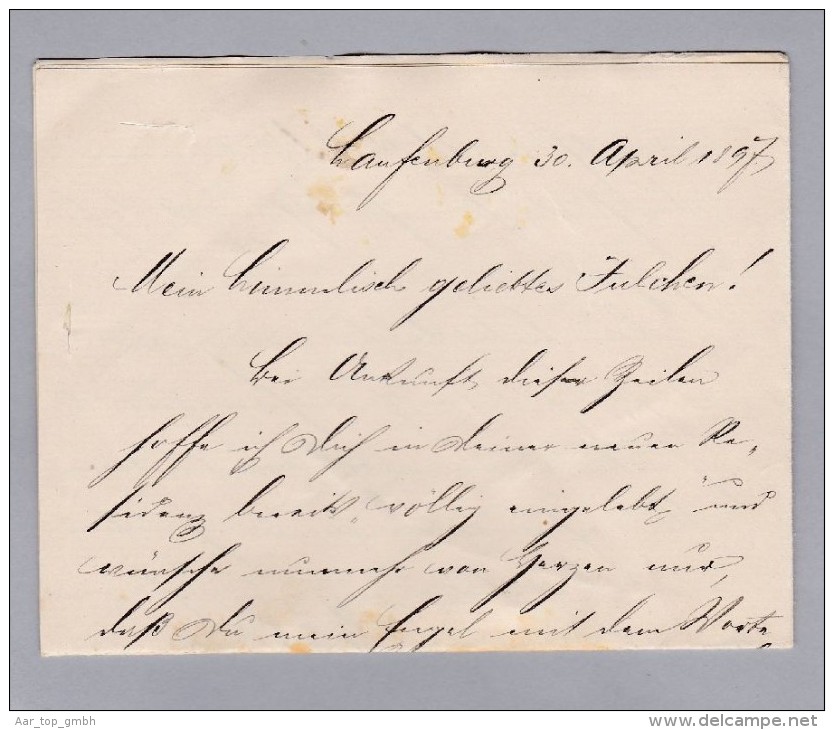 Laufenburg 30. April 1897
Mein himmlisch geliebtes Julchen!
Bei Ankunft dieser Zeilen
hoffe ich Dich in Deiner neuen Re„
sidenz bereits völlig eingelebt und
wünsche nunmehr von Herzen nur,
daß Du mein Engel mit dem Worte
Aar_top_gmbh
www.delcampe.net